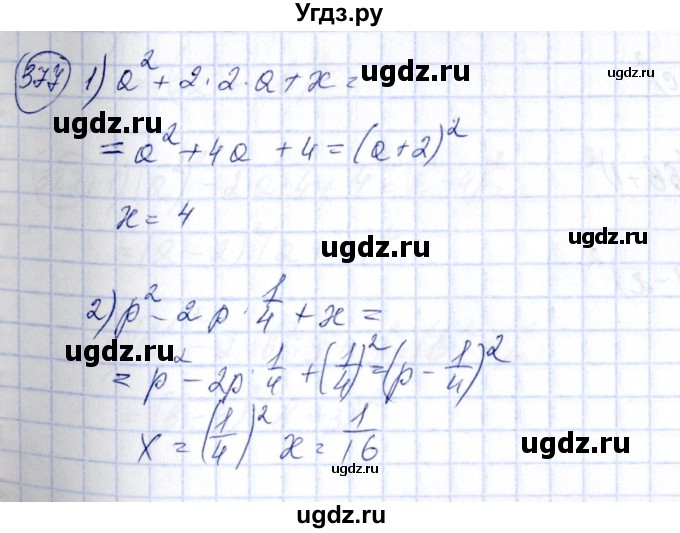 Угдз.ру
377 1) a² + 2·2·a + x =
ugdz.ru
ugdz.ru
= a² + 4a + 4 = (a+2)²
ugdz.ru
x = 4
ugdz.ru
ugdz.ru
2) p² - 2p · 1/4 + x =
ugdz.ru
ugdz.ru
= p² - 2p · 1/4 + (1/4)² = (p - 1/4)²
x = (1/4)² x = 1/16
ugdz.ru
ugdz.ru
ugdz.ru
ugdz.ru